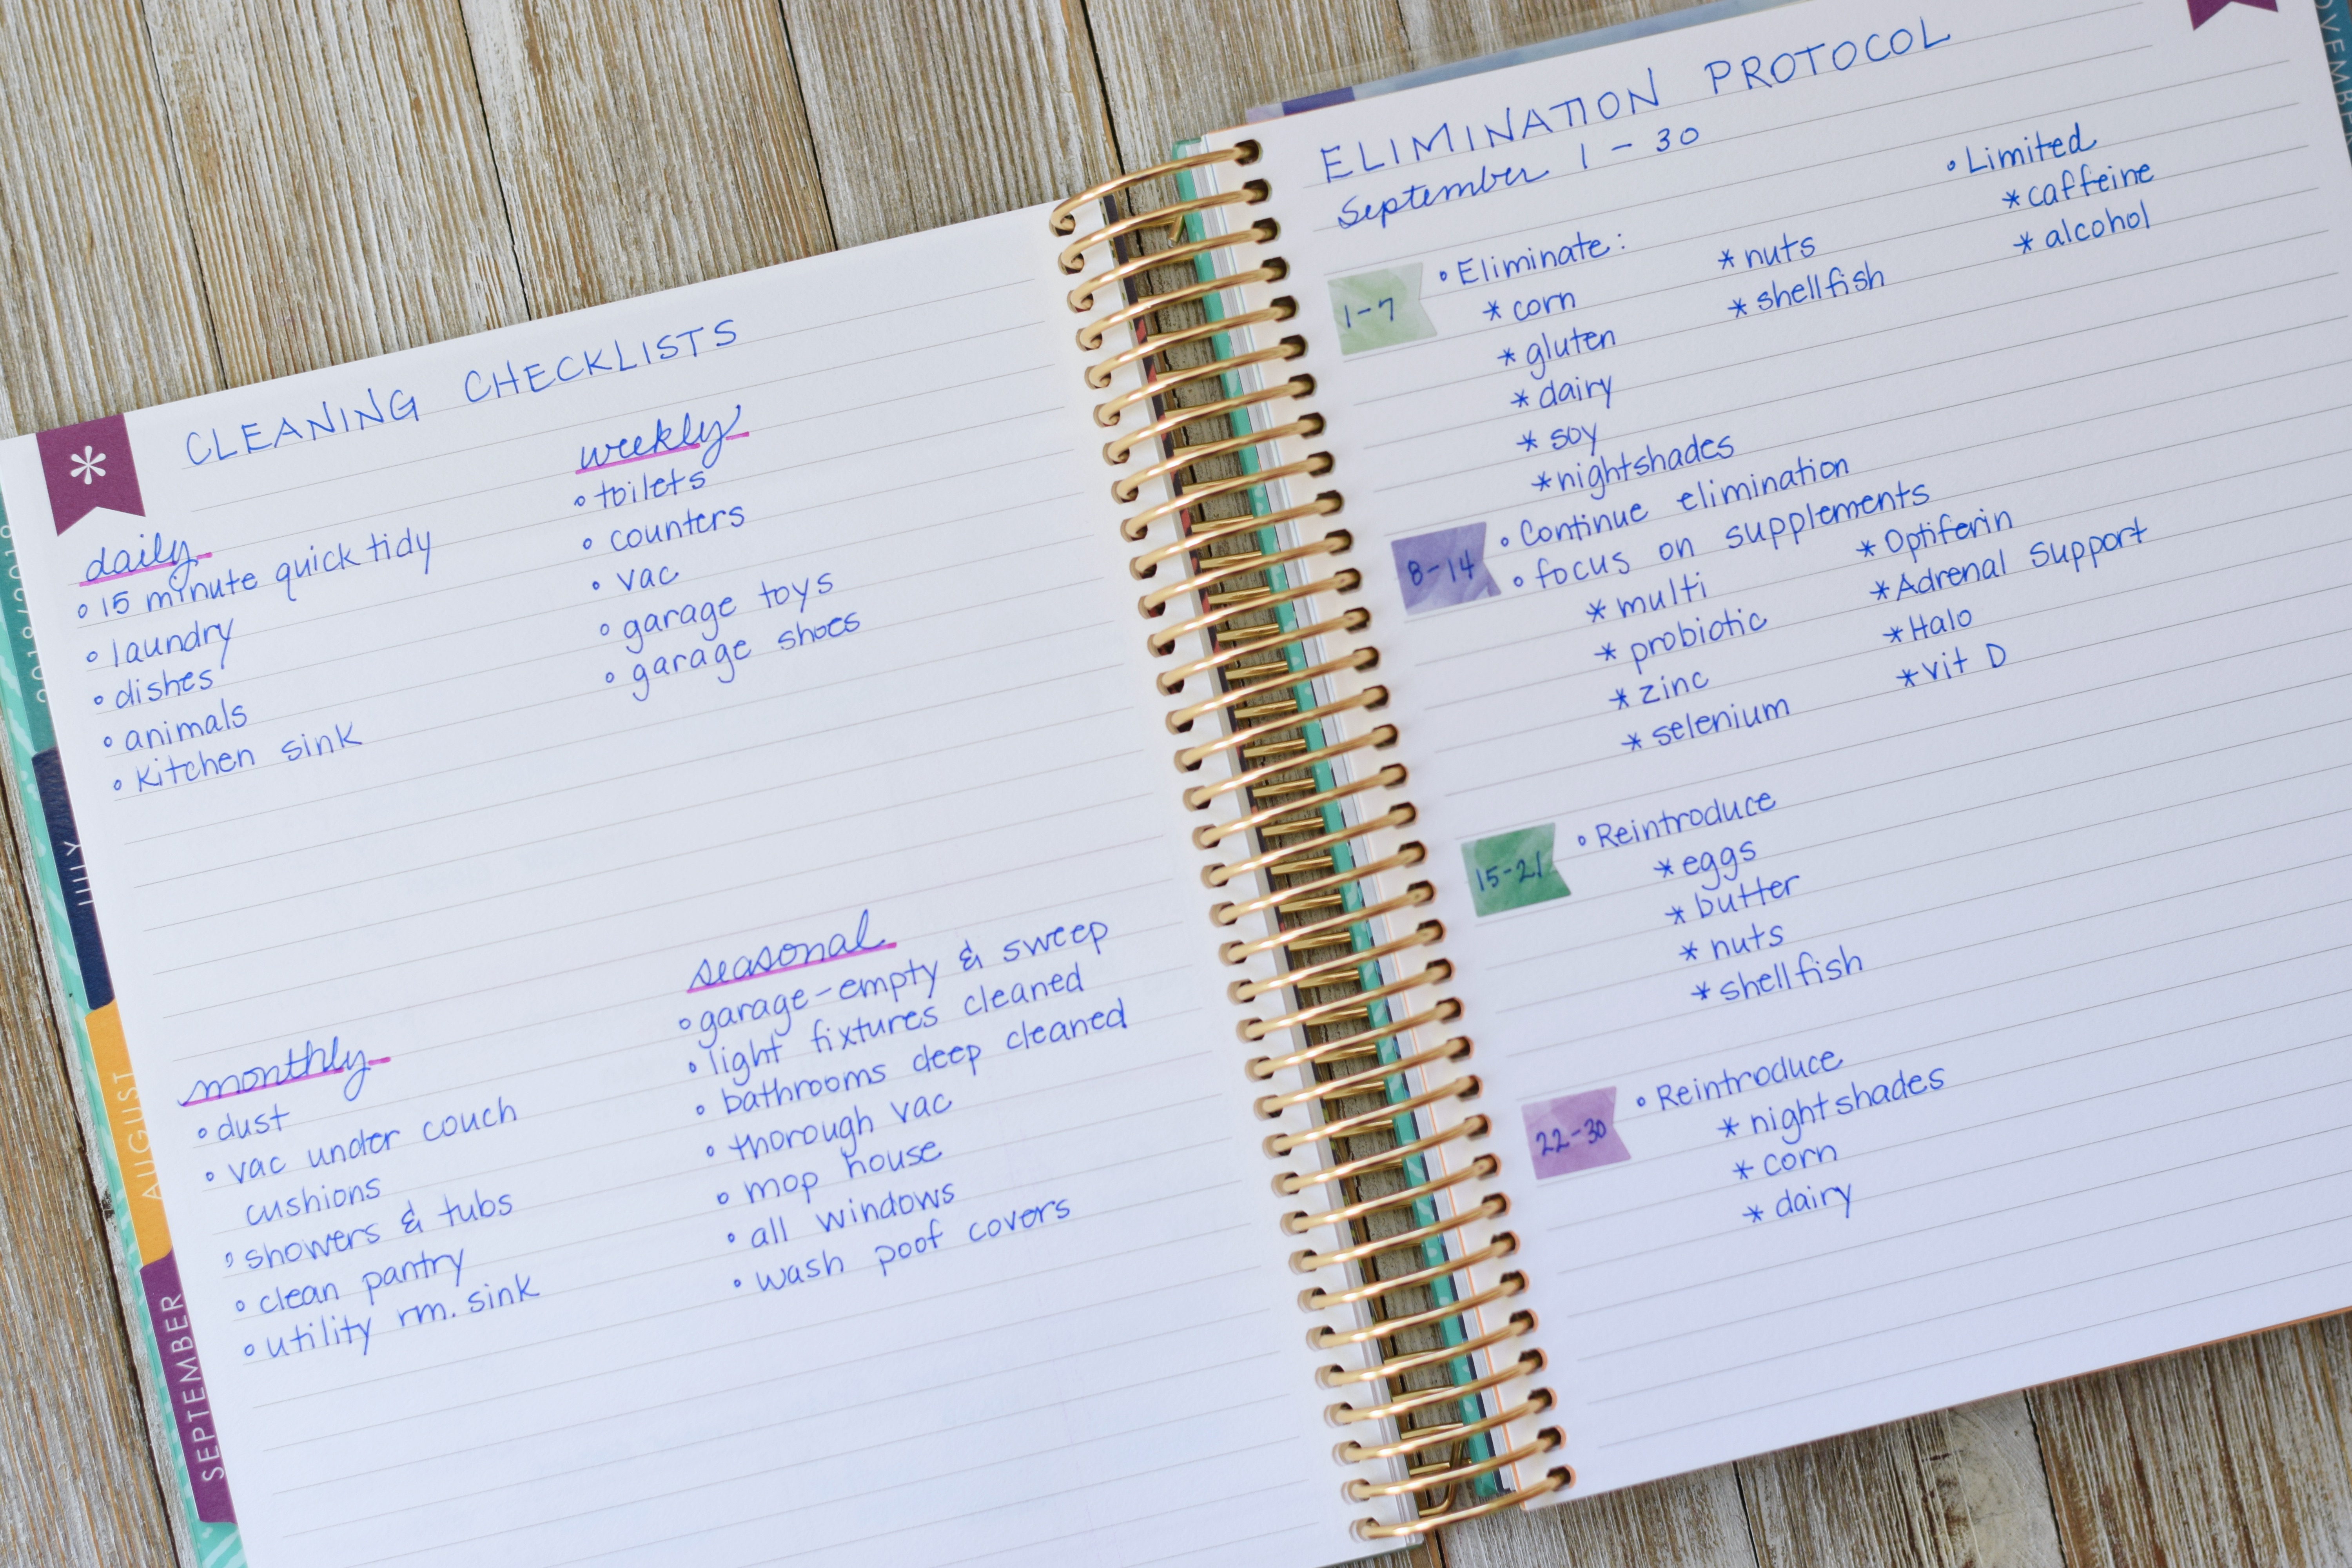 CLEANING CHECKLISTS
*
daily
° 15 minute quick tidy
° laundry
° dishes
° animals
° kitchen sink
weekly
° toilets
° counters
° vac
° garage toys
° garage shoes
monthly
° dust
° vac under couch
cushions
° showers & tubs
° clean pantry
° utility rm. sink
seasonal
° garage-empty & sweep
° light fixtures cleaned
° bathrooms deep cleaned
° thorough vac
° mop house
° all windows
° wash poof covers
2018/2019
JULY
AUGUST
SEPTEMBER
ELIMINATION PROTOCOL
September 1 - 30
1-7
° Eliminate:
* corn
* gluten
* dairy
* soy
* nightshades
* nuts
* shellfish
° Limited
* caffeine
* alcohol
8-14
° Continue elimination
° focus on supplements
* multi
* probiotic
* zinc
* selenium
* Optiferin
* Adrenal Support
* Halo
* vit D
15-21
° Reintroduce
* eggs
* butter
* nuts
* shellfish
22-30
° Reintroduce
* nightshades
* corn
* dairy